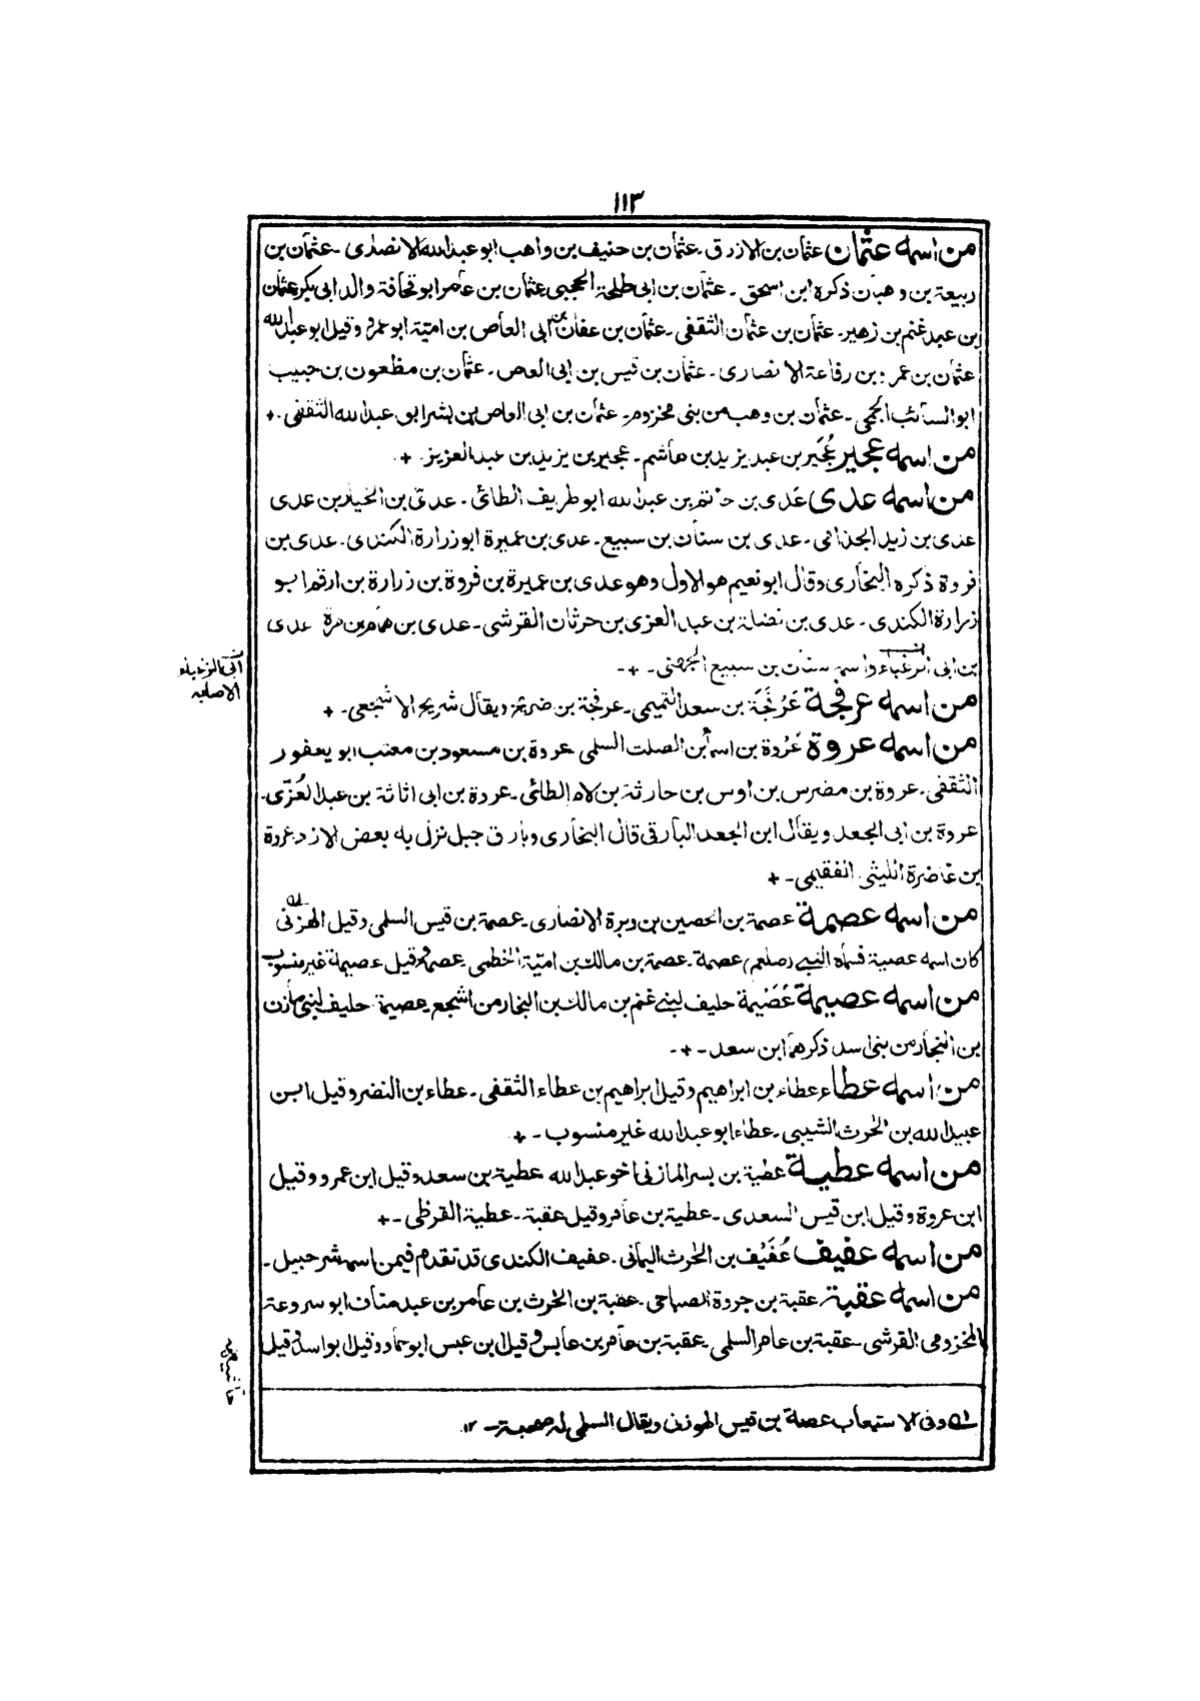 ١١٣
من اسمه عثمان عثمان بن الازرق ـ عثمان بن حنيف بن واهب ابو عبد الله الانصارى ـ عثمان بن
ربيعة بن وهبان ذكره ابن اسحق ـ عثمان بن ابى طلحة الحجبى عثمان بن عامر ابو قحافة والد ابى بكر عثمان
بن عبد غنم بن زهير ـ عثمان بن عثمان الثقفى ـ عثمان بن عفان بن ابى العاص بن امية ابو عمرو وقيل ابو عبد الله
عثمان بن عمرو بن رفاعة الانصارى ـ عثمان بن قيس بن ابى العص ـ عثمان بن مظعون بن حبيب
ابو السائب الجمحى ـ عثمان بن وهب من بنى مخزوم ـ عثمان بن ابى العاص بن بشر ابو عبد الله الثقفى ٠+
من اسمه عجير عُجَير بن عبد يزيد بن هاشم ـ عجير بن يزيد بن عبد العزيز ٠+
من اسمه عدى عَدى بن حاتم بن عبد الله ابو طريف الطائى ـ عدىّ بن الخيار بن عدى
عدى بن زيد الجذامى ـ عدى بن سنان بن سبيع ـ عدى بن عميرة ابو زرارة الكندى ـ عدى بن
فروة ذكره البخارى وقال ابو نعيم هو الاول وهو عدى بن عميرة بن فروة بن زرارة بن ارقم ابو
زرارة الكندى ـ عدى بن نضلة بن عبد العزى بن حرثان القرشى ـ عدى بن همام بن مرة عدى
بن ابى الزغباء واسمه سنان بن سبيع الجهنى ـ+ـ
من اسمه عرفجة عَرْفَجَة بن سعد التميمى ـ عرفجة بن ضريح ويقال شريح الاشجعى ـ +
من اسمه عروة عُرْوة بن اسماء بن الصلت السلمى عروة بن مسعود بن معتب ابو يعفور
الثقفى ـ عروة بن مضرس بن اوس بن حارثة بن لام الطائى ـ عروة بن ابى اثاثة بن عبد العُزّى ـ
عروة بن ابى الجعد ويقال ابن الجعد البارقى قال البخارى وبارق جبل نزل به بعض الازد عروة
بن عاضرة الليثى الفقيمى ـ +
من اسمه عصمة عصمة بن الحصين بن وبرة الانصارى ـ عصمة بن قيس السلمى وقيل الهوزنى
كان اسمه عصية فسماه النبى (صلعم) عصمة ـ عصمة بن مالك بن امية الخطمى عصمة وقيل عصيمة غير منسوب
من اسمه عصيمة عُصَيْمة حليف لبنى غنم بن مالك بن النجار من اشجع عصيمة حليف لبنى مازن
بن النجار من بنى اسد ذكرهما ابن سعد ـ+ـ
من اسمه عطاء عطاء بن ابراهيم وقيل ابراهيم بن عطاء الثقفى ـ عطاء بن النضر وقيل ابن
عبيد الله بن الحرث الشيبى ـ عطاء ابو عبد الله غير منسوب ـ+
من اسمه عطية عطية بن بسر المازنى اخو عبد الله عطية بن سعد وقيل ابن عمرو وقيل
ابن عروة وقيل ابن قيس السعدى ـ عطية بن عامر وقيل عقبة ـ عطية القرظى ـ+
من اسمه عفيف عُفَيْف بن الحرث اليمانى ـ عفيف الكندى قد تقدم فيمن اسمه شرحبيل ـ
من اسمه عقبة عقبة بن جروة الصباحى ـ عقبة بن الحرث بن عامر بن عبد مناف ابو سروعة
المخزومى القرشى ـ عقبة بن عامر السلمى ـ عقبة بن عامر بن عابس وقيل ابن عبس ابو حماد وقيل ابو اسد وقيل
ابى الزغباء
الاصابه
وفى الاستيعاب عصمة بن قيس الهوزنى ويقال السلمى له صحبة ـ ١٢